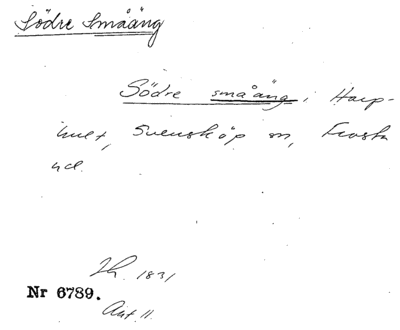 Södre Småäng
Södre småäng i Harp-
hult, Svensköp sn, Frosta
hd.
Lh. 1831
Nr 6789.
Akt 11.